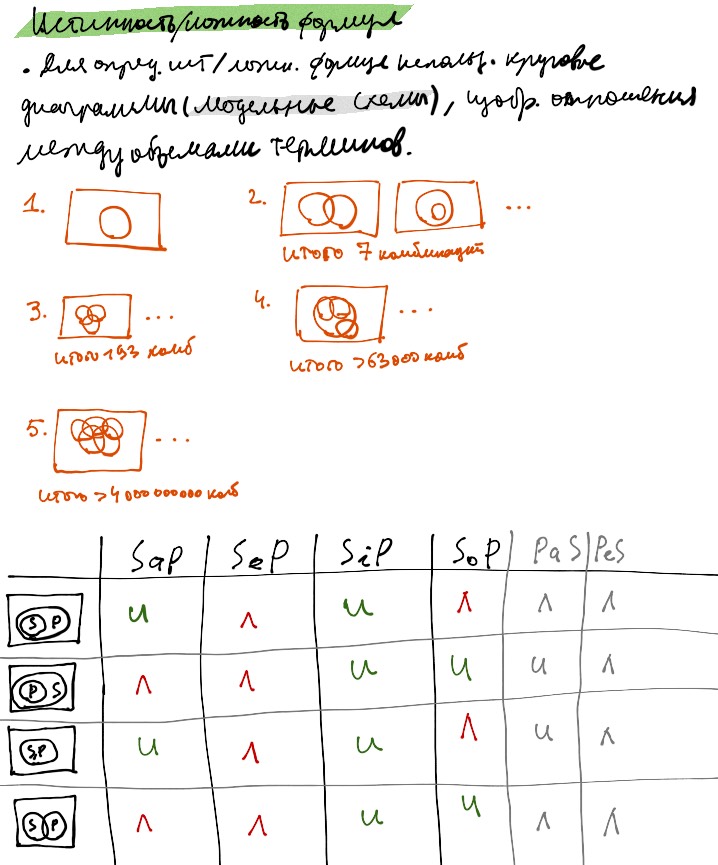 Истинность/ложность формул
• Для опред. ист/ложн. формул использ. круговые
диаграммы (модельные схемы), изобр. отношения
между объемами терминов.
1.
2.
...
итого 7 комбинаций
3.
...
итого 193 комб
4.
...
итого >63000 комб
5.
...
итого >4000000000 комб
SaP SeP SiP SoP PaS PeS
S P и л и л л л
P S л л и и и л
S,P и л и л и л
S P л л и и л л